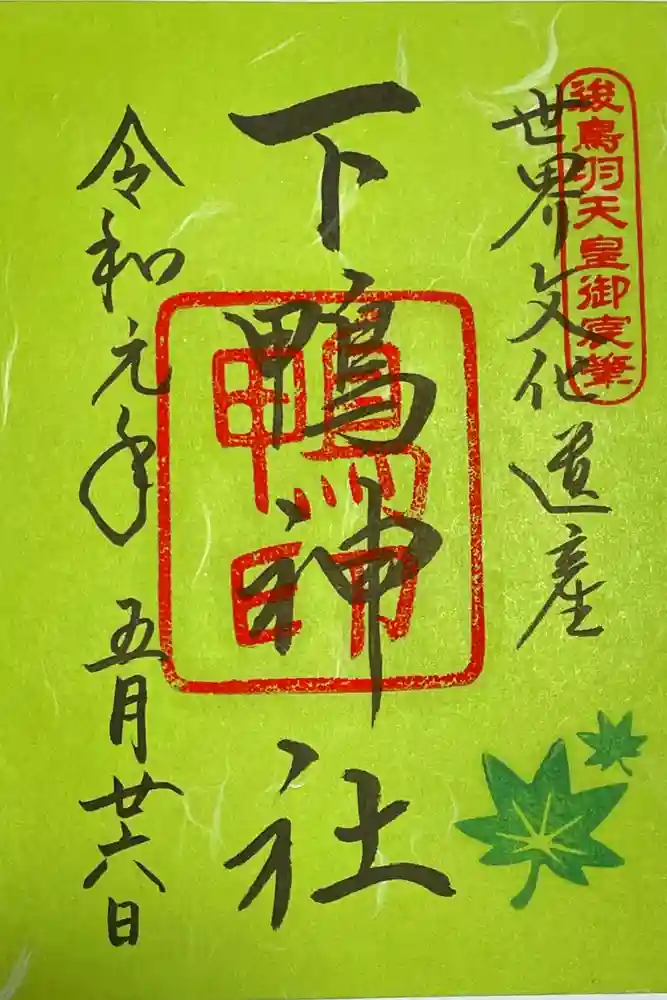 後鳥羽天皇御宸筆
世界文化遺産
下鴨神社
鴨印
令和元年五月廿六日